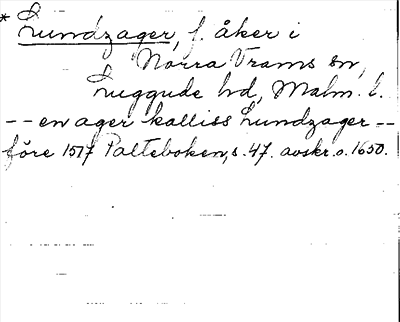 * Lundzager, f. åker i
Norra Vrams sn,
Luggude hd, Malm. l.
-- en ager kalliss Lundzager --
före 1517 Palteboken, s. 47. avskr. o. 1650.